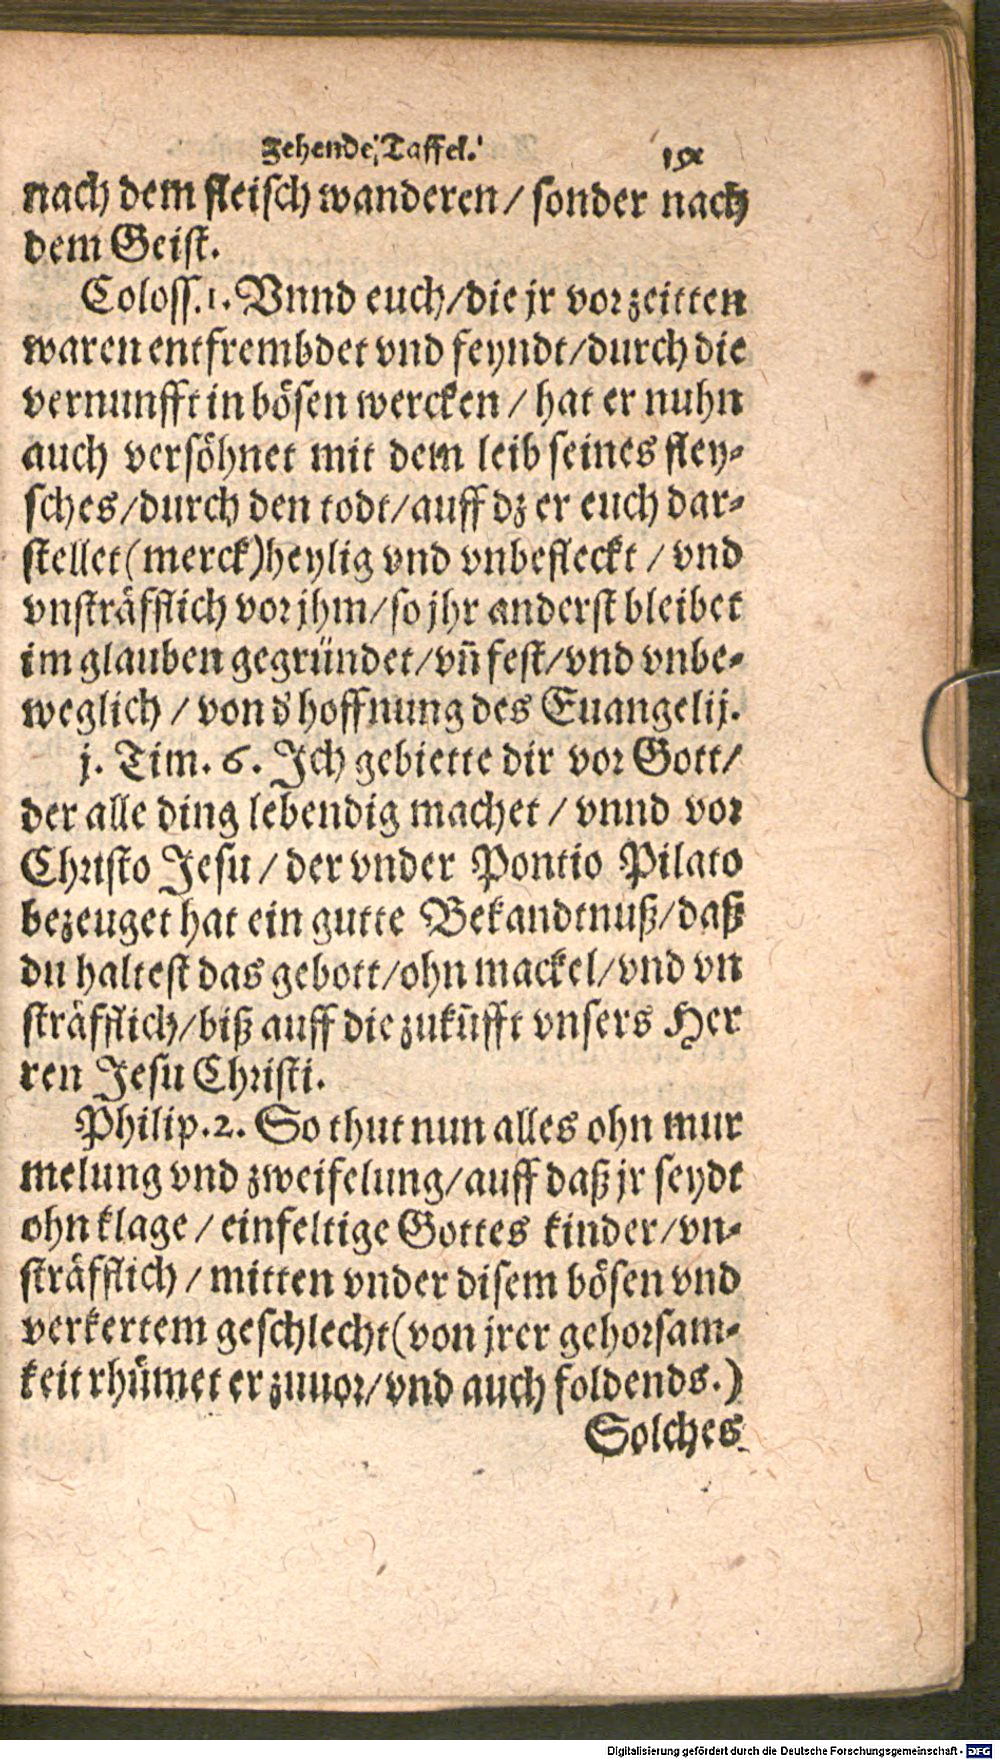 Zehende Taffel.
nach dem fleisch wanderen / sonder nach
dem Geist.
Coloss. 1. Vnnd euch / die jr vor zeitten
waren entfrembdet vnd feyndt / durch die
vernunfft in bösen wercken / hat er nuhn
auch versöhnet mit dem leib seines fley-
sches / durch den todt / auff dz er euch dar-
stellet (merck) heylig vnd vnbefleckt / vnd
vnsträfflich vor jhm / so jhr anderst bleibet
im glauben gegründet / vñ fest / vnd vnbe-
weglich / von d' hoffnung des Euangelij.
j. Tim. 6. Ich gebiette dir vor Gott /
der alle ding lebendig machet / vnnd vor
Christo Jesu / der vnder Pontio Pilato
bezeuget hat ein gutte Bekandtnuß / daß
du haltest das gebott / ohn mackel / vnd vn
sträfflich / biß auff die zukũfft vnsers Her
ren Jesu Christi.
Philip. 2. So thut nun alles ohn mur
melung vnd zweifelung / auff daß jr seydt
ohn klage / einfeltige Gottes kinder / vn-
sträfflich / mitten vnder disem bösen vnd
verkertem geschlecht (von jrer gehorsam-
keit rhümet er zuuor / vnd auch foldends.)
Solches
Digitalisierung gefördert durch die Deutsche Forschungsgemeinschaft - DFG